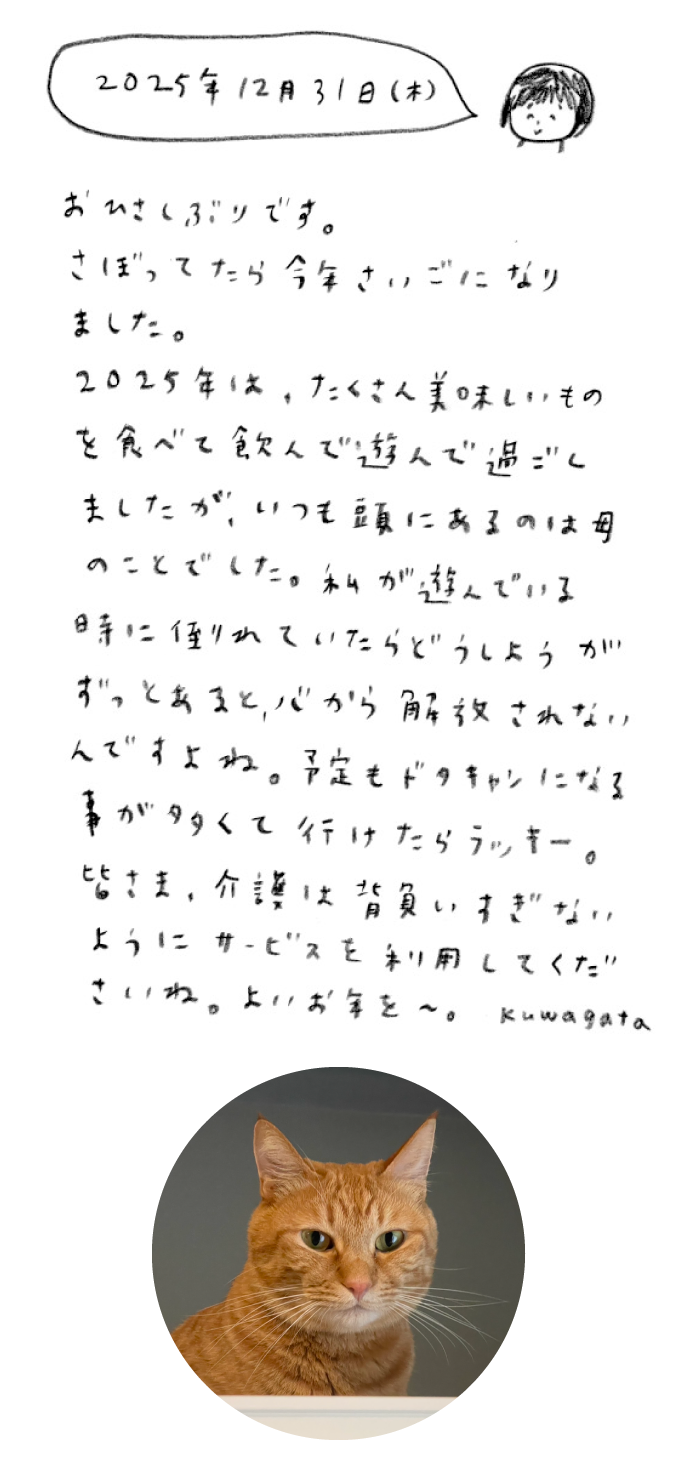 2025年12月31日(木)
おひさしぶりです。
さぼってたら今年さいごになり
ました。
2025年は、たくさん美味しいもの
を食べて飲んで遊んで過ごし
ましたが、いつも頭にあるのは母
のことでした。私が遊んでいる
時に倒れていたらどうしようが
ずっとあると、心から解放されない
んですよね。予定もドタキャンになる
事が多くて行けたらラッキー。
皆さま、介護は背負いすぎない
ようにサービスを利用してくだ
さいね。よいお年を〜。 kuwagata